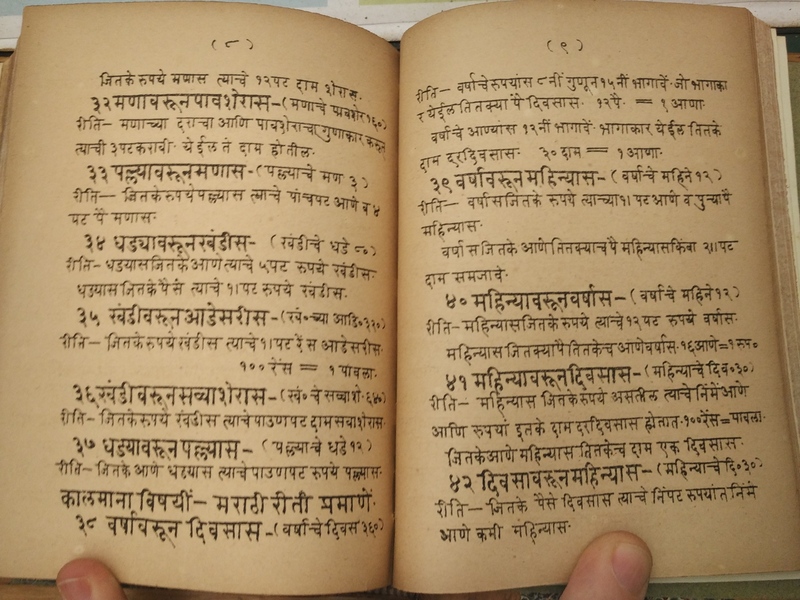 (८)
जितके रुपये मणास त्याचे १२पट दाम शेरास.
३२ मणावरून पावशेरास-(मणाचे पावशेर१६०)
रीति- मणाच्या दराचा आणि पावशेराचा गुणाकार करून
त्याची ३पटकरावी. येईल ते दाम होतील.
३३ पल्ल्यावरूनमणास-(पल्ल्याचे मण ३)
रीति- जितकेरुपयेपल्ल्यास त्याचे पांचपट आणे व ४
पट पै मणास.
३४ धड्यावरूनखंडीस-(खंडीचे धडे ८०)
रीति- धडयासजितके आणे त्याचे ५पट रुपये खंडीस.
धडयास जितके पैसे त्याचे १।पट रुपये खंडीस.
३५ खंडीवरून आडेसरीस-(खं०च्या आडि०३२०)
रीति- जितके रुपये खंडीस त्याचे१।पट रेंस आडेसरीस.
१०० रेंस = १ पावला.
३६ खंडीवरून सव्याशेरास-(खं०चे सव्वाशे.६४०)
रीति- जितकेरुपये खंडीस त्याचे पाउणपट दाम सवाशेरास.
३७ धड्यावरून पल्ल्यास- (पल्ल्याचे धडे १२)
रीति- जितके आणे धडयास त्याचे पाउणपट रुपये पल्ल्यास.
कालमाना विषयीं- मराठी रीती प्रमाणें.
३८ वर्षावरून दिवसास-(वर्षाचे दिवस ३६०)
(९)
रीति- वर्षाचेरुपयांस ८नीं गुणून१५नीं भागावें. जो भागाका
र येईल तितक्या पै दिवसास. १२पै. = १ आणा.
वर्षाचे आण्यांस १२नीं भागावें. भागाकार येईल तितके
दाम दरदिवसास. ३०दाम = १आणा.
३९ वर्षावरूनमहिन्यास-(वर्षाचे महिने १२)
रीति- वर्षासजितके रुपये त्याच्या१।पटआणे व पुऱ्यापै
महिन्यास.
वर्षासजितके आणे तितक्याचपै महिन्यासकिंवा २॥पट
दाम समजावे.
४० महिन्यावरून वर्षास-(वर्षाचे महिने१२)
रीति- महिन्यासजितकेरुपये त्याचे१२पट रुपये वर्षास.
महिन्यास जितक्यापै तितकेच आणेवर्षास.१६आणे=१रुप०
४१ महिन्यावरूनदिवसास-(महिन्याचे दिव०३०)
रीति- महिन्यास जितके रुपये असतील त्याचे निंमे आणे
आणि रुपया इतके दाम दरदिवसास होतात.१००रेंस=पावला.
जितकेआणे महिन्यास तितकेच दाम एक दिवसास.
४२ दिवसावरून महिन्यास-(महिन्याचे दि०३०)
रीति- जितके पैसे दिवसास त्याचे निंपट रुपयांत निंमे
आणे कमी महिन्यास.